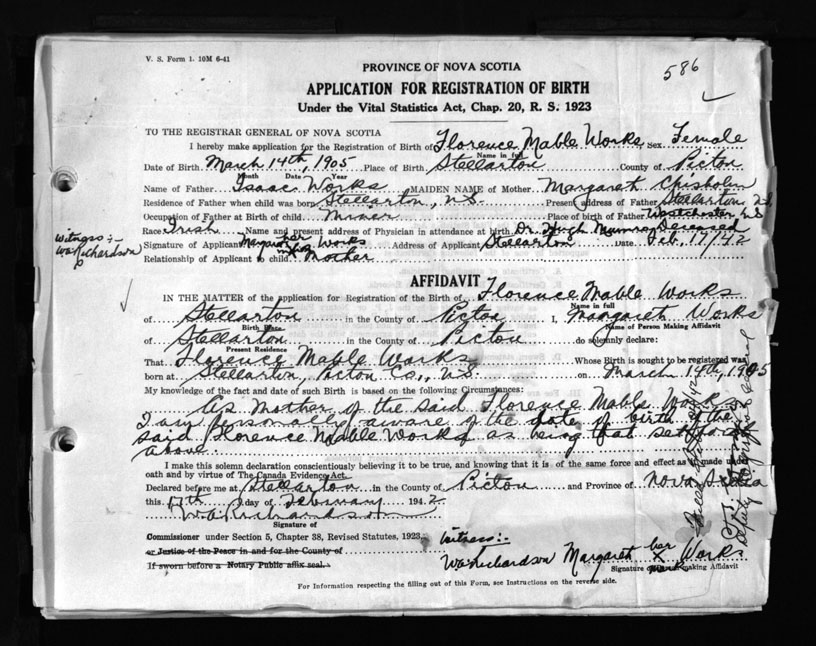 V. S. Form 1. 10M 6-41
586
PROVINCE OF NOVA SCOTIA
APPLICATION FOR REGISTRATION OF BIRTH
Under the Vital Statistics Act, Chap. 20, R. S. 1923
TO THE REGISTRAR GENERAL OF NOVA SCOTIA
I hereby make application for the Registration of Birth of Florence Mable Works Sex Female
Name in full
Date of Birth March 14th, 1905 Place of Birth Stellarton County of Picton
Month Date Year
Name of Father Isaac Works MAIDEN NAME of Mother Margaret Chisholm
Residence of Father when child was born Stellarton, N.S. Present address of Father Stellarton N.S.
Occupation of Father at Birth of child Miner Place of birth of Father Westchester N.S.
Race Irish Name and present address of Physician in attendance at birth Dr. Hugh Munro, Deceased
witness:-
WA Richardson
Signature of Applicant Margaret her X Works Address of Applicant Stellarton Date Feb. 17/42
Relationship of Applicant to child Mother
AFFIDAVIT
IN THE MATTER of the application for Registration of the Birth of Florence Mable Works
Name in full
of Stellarton in the County of Picton I, Margaret Works
Birth Place Name of Person Making Affidavit
of Stellarton in the County of Picton do solemnly declare:
Present Residence
That Florence Mable Works Whose Birth is sought to be registered was
born at Stellarton, Picton Co., N.S. on March 14th, 1905
My knowledge of the fact and date of such Birth is based on the following Circumstances:
As Mother of the said Florence Mable Works
I am personally aware of the date of birth of the
said Florence Mable Works as being that set forth
above.
I make this solemn declaration conscientiously believing it to be true, and knowing that it is of the same force and effect as if made under
oath and by virtue of The Canada Evidence Act.
Declared before me at Stellarton in the County of Picton and Province of Nova Scotia
this 17th day of February 1942
WA Richardson
Signature of
Commissioner under Section 5, Chapter 38, Revised Statutes, 1923
or Justice of the Peace in and for the County of
If sworn before a Notary Public affix seal.
Witness:-
WA Richardson Margaret her X Works
Signature of making Affidavit
For Information respecting the filling out of this Form, see Instructions on the reverse side.